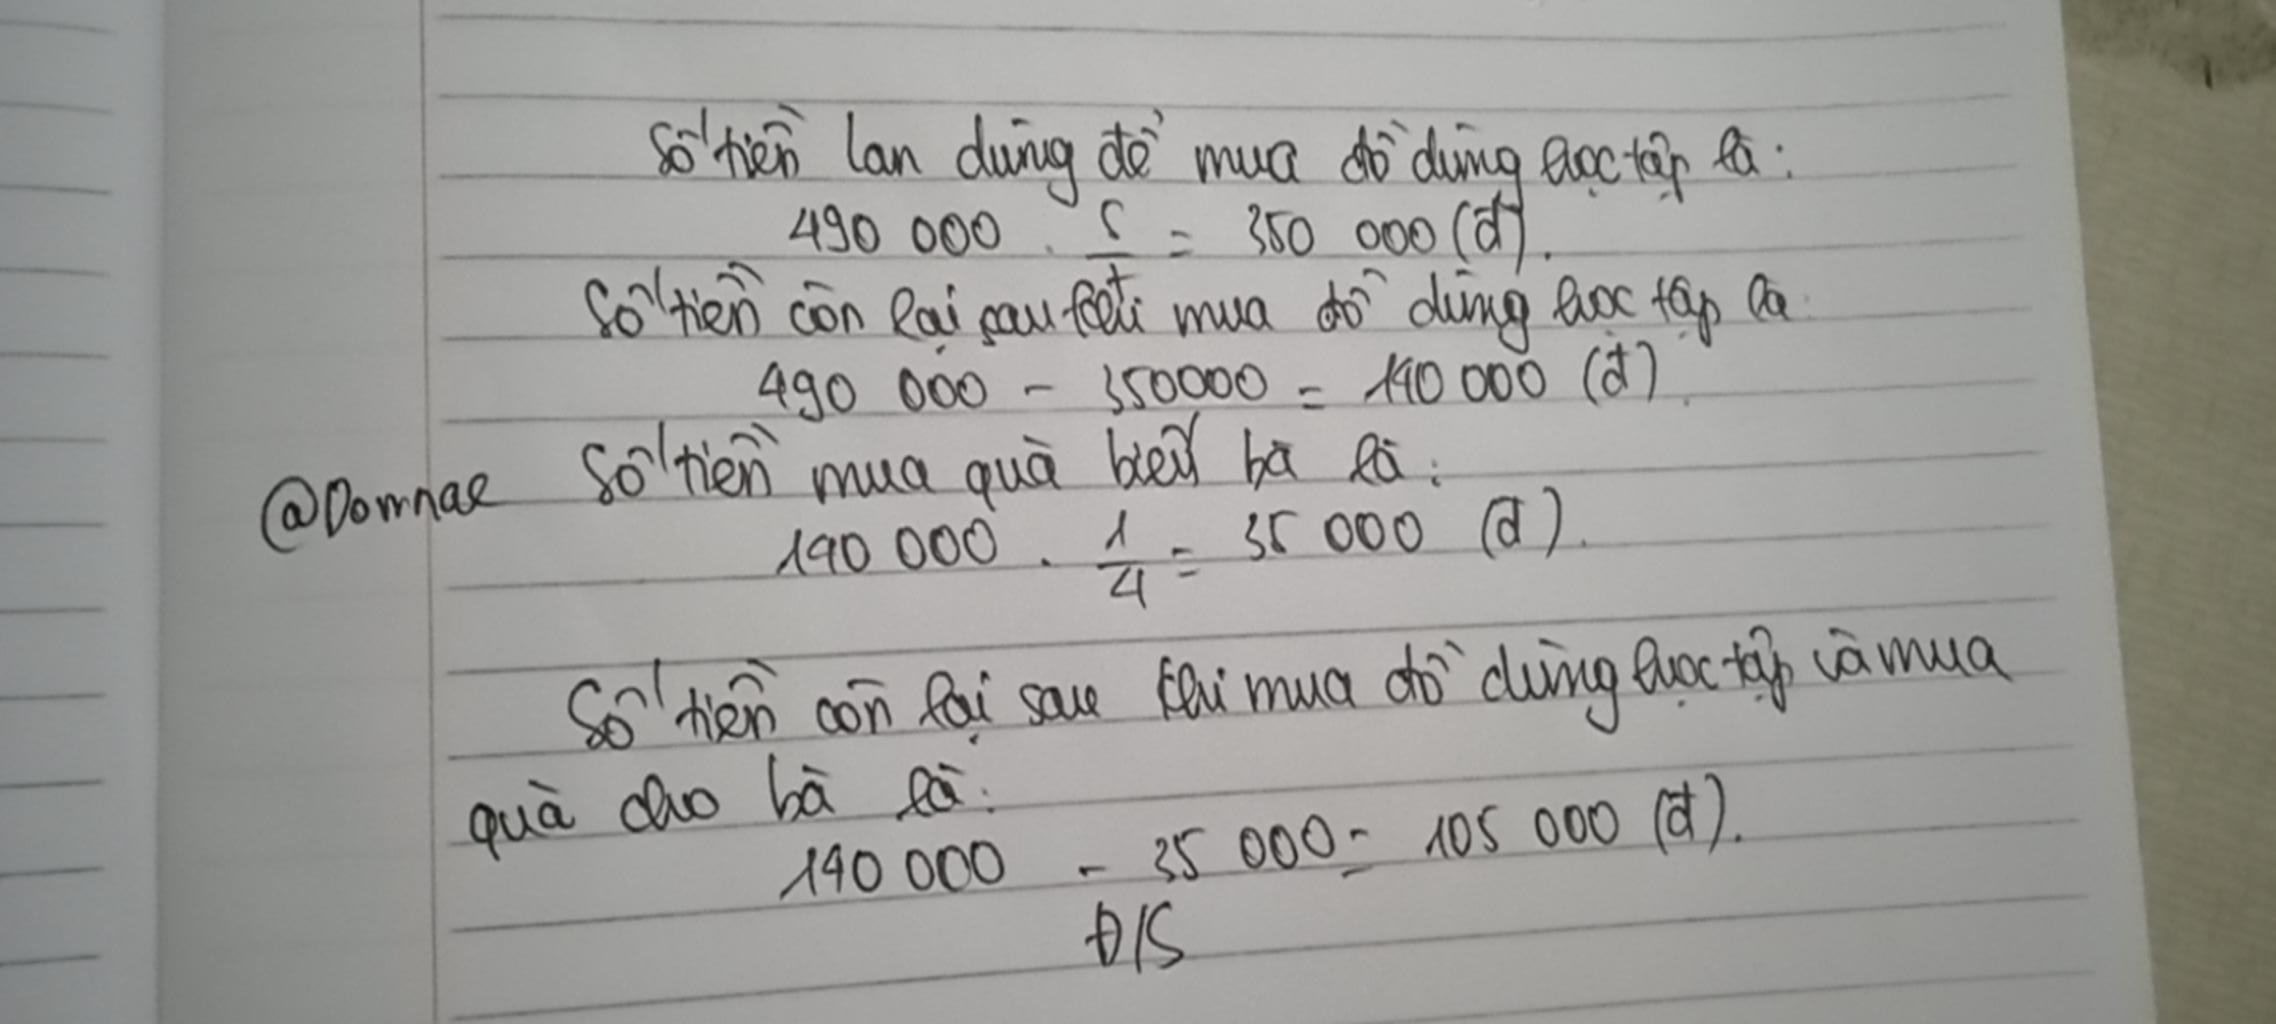 Số tiền Lan dùng để mua đồ dùng học tập là:
490 000 . 5/7 = 350 000 (đ).
Số tiền còn lại sau khi mua đồ dùng học tập là
490 000 - 350000 = 140 000 (đ).
@Domnae Số tiền mua quà biếu bà là:
140 000 . 1/4 = 35 000 (đ).
Số tiền còn lại sau khi mua đồ dùng học tập và mua
quà cho bà là:
140 000 - 35 000 = 105 000 (đ).
Đ/S